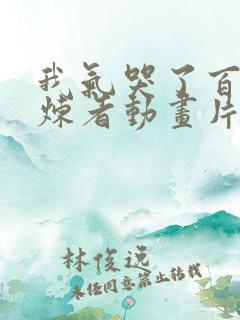 我氣哭了百
煉者動畫片
林俊远
未经同意禁止转载